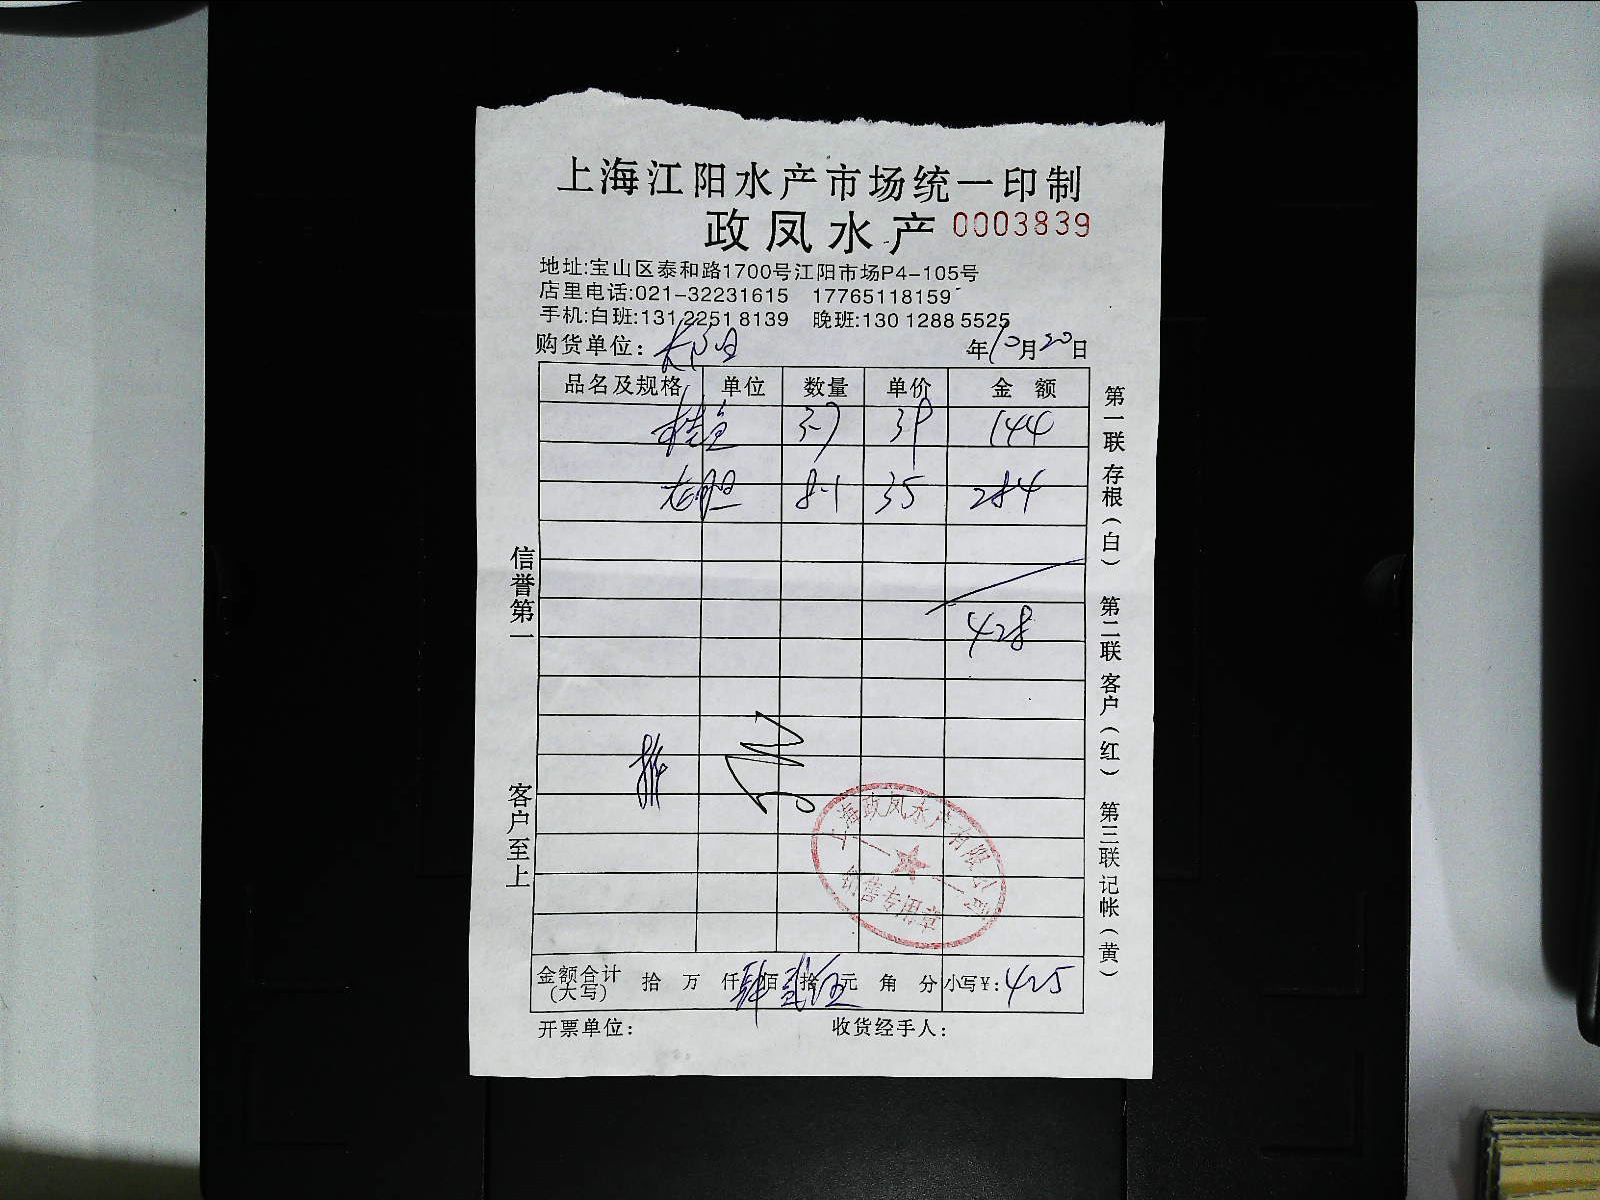 上海江阳水产市场统一印制
政凤水产 0003839
地址:宝山区泰和路1700号江阳市场P4-105号
店里电话:021-32231615 17765118159
手机:白班:131 2251 8139 晚班:130 1288 5525
购货单位: 年10月20日
品名及规格 单位 数量 单价 金额
桂鱼 3.7 39 144
老胆 8.1 35 284
428
上海政凤水产有限公司
销售专用章
金额合计(大写) 拾 万 仟肆佰贰拾伍元 角 分 小写¥:425
开票单位: 收货经手人:
信誉第一
客户至上
第一联存根(白) 第二联客户(红) 第三联记帐(黄)